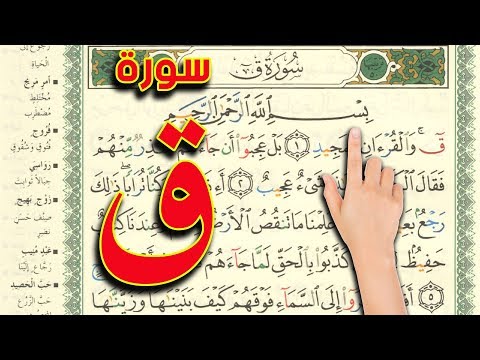 سُورَةُ قٓ
سورة
ق
بِسْمِ ٱللَّهِ ٱلرَّحْمَٰنِ ٱلرَّحِيمِ
قٓ وَٱلْقُرْءَانِ ٱلْمَجِيدِ ١ بَلْ عَجِبُوٓا۟ أَن مِّنْهُمْ
فَقَالَ شَىْءٌ عَجِيبٌ ٢ وَكُنَّا تُرَابًا ذَٰلِكَ
رَجْعٌۢ عَلِمْنَا مَا تَنقُصُ ٱلْأَرْضُ وَعِندَنَا كِتَٰبٌ
حَفِيظٌۢ كَذَّبُوا۟ بِٱلْحَقِّ لَمَّا جَآءَهُمْ
٥ إِلَى ٱلسَّمَآءِ فَوْقَهُمْ كَيْفَ بَنَيْنَٰهَا وَزَيَّنَّٰهَا
رجوع إلى
الحياة
أمر مريج
مختلط
مضطرب
فروج
فتوق وشقوق
رواسي
جبالا ثوابت
زوج بهيج
صنف حسن
نضر
عبد منيب
رجاع إلينا
حب الحصيد
حب الزرع